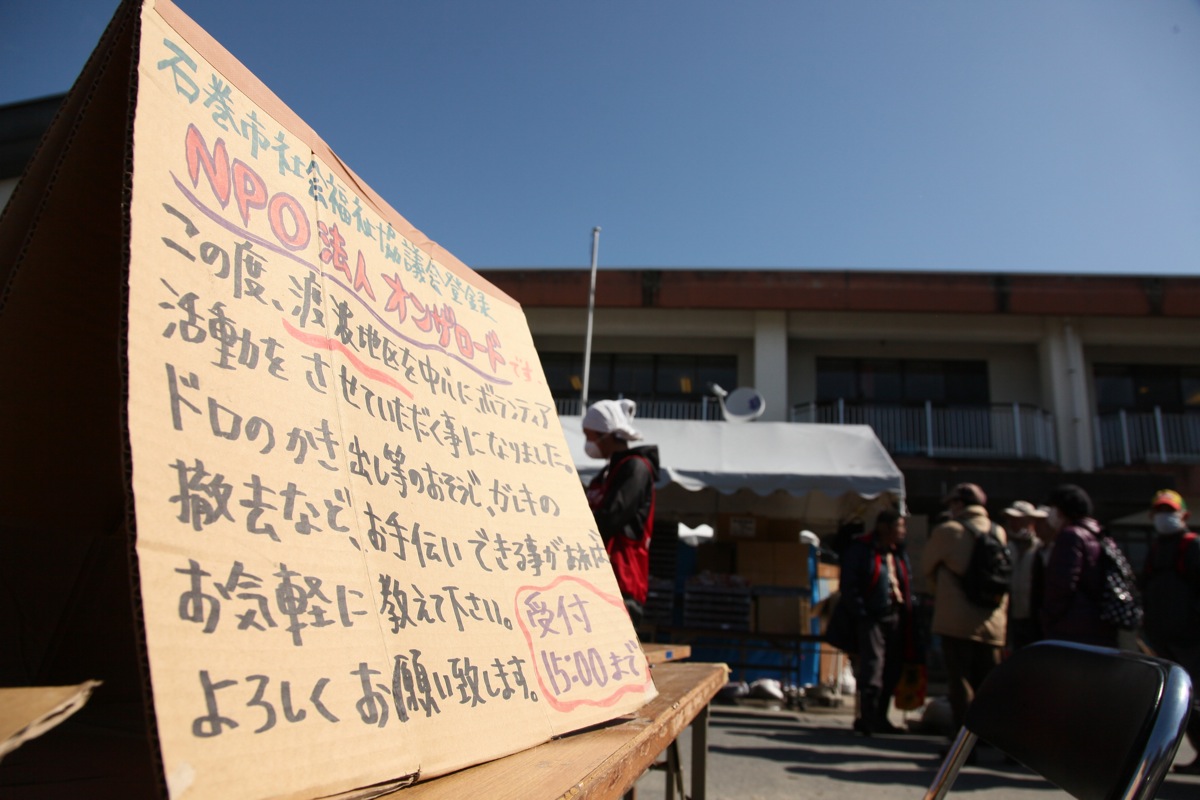 石巻市社会福祉協議会登録
NPO法人 オンザロードです。
この度、渡波地区を中心にボランティア
活動をさせていただく事になりました。
ドロのかき出し等のおそうじ、ガレキの
撤去など、お手伝いできる事があれば、
お気軽に教えて下さい。
よろしくお願い致します。
受付
15:00まで